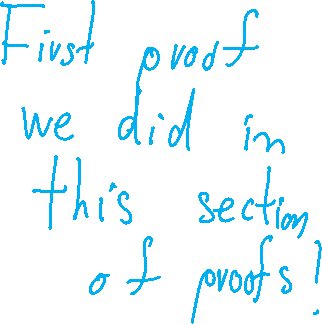 First proof
we did in
this section
of proofs!